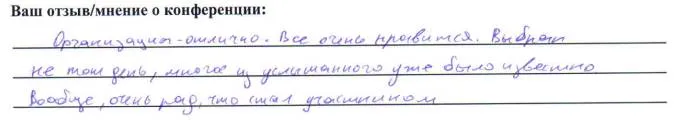 Ваш отзыв/мнение о конференции:
Организация - отлично. Все очень нравится. Выбрал
не тот день, многое из услышанного уже было известно
Вообще, очень рад, что стал участником